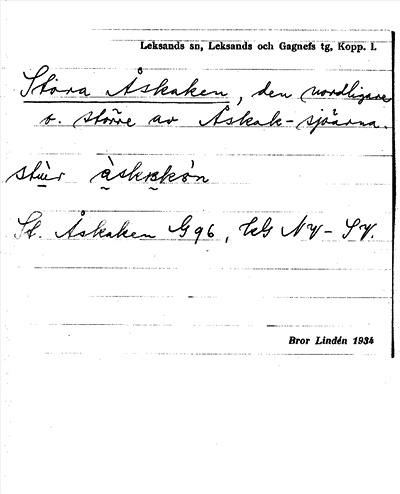 Leksands sn, Leksands och Gagnefs tg, Kopp. l.
Stora Åskaken, den nordligare
o. större av Åskak-sjöarna.
St. Åskaken G 96, kG NV - SV.
Bror Lindén 1934